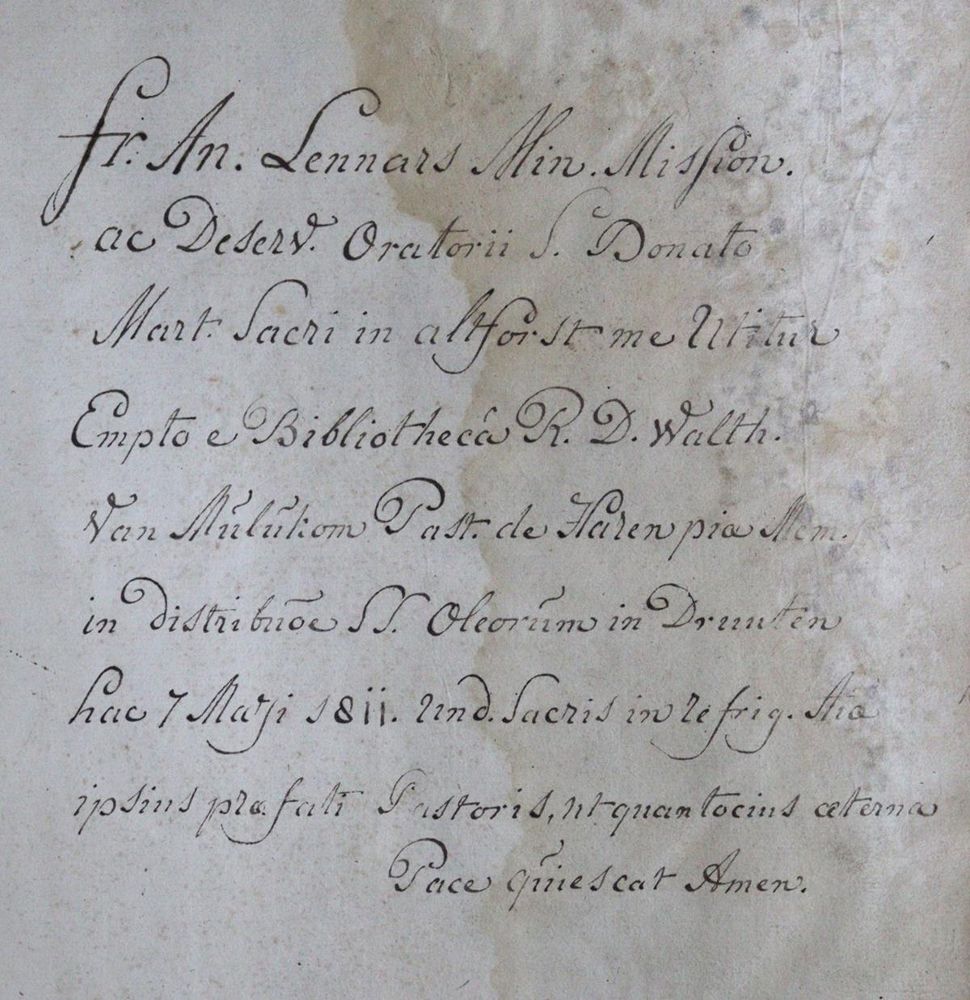 fr. An. Lennars Min. Mission.
ac Deserv. Oratorii S. Donato
Mart. Sacri in altforst me Utitur
Empto e Bibliothecâ R. D. Walth.
Van Mulukom Past. de Haren piæ Mem.
in distribuōe SS. Oleorum in Druuten
hac 7 Maji 1811. Und. Sacris in refrig. Aiæ
ipsius præfati Pastoris, ut quantocius æterna
Pace quiescat Amen.